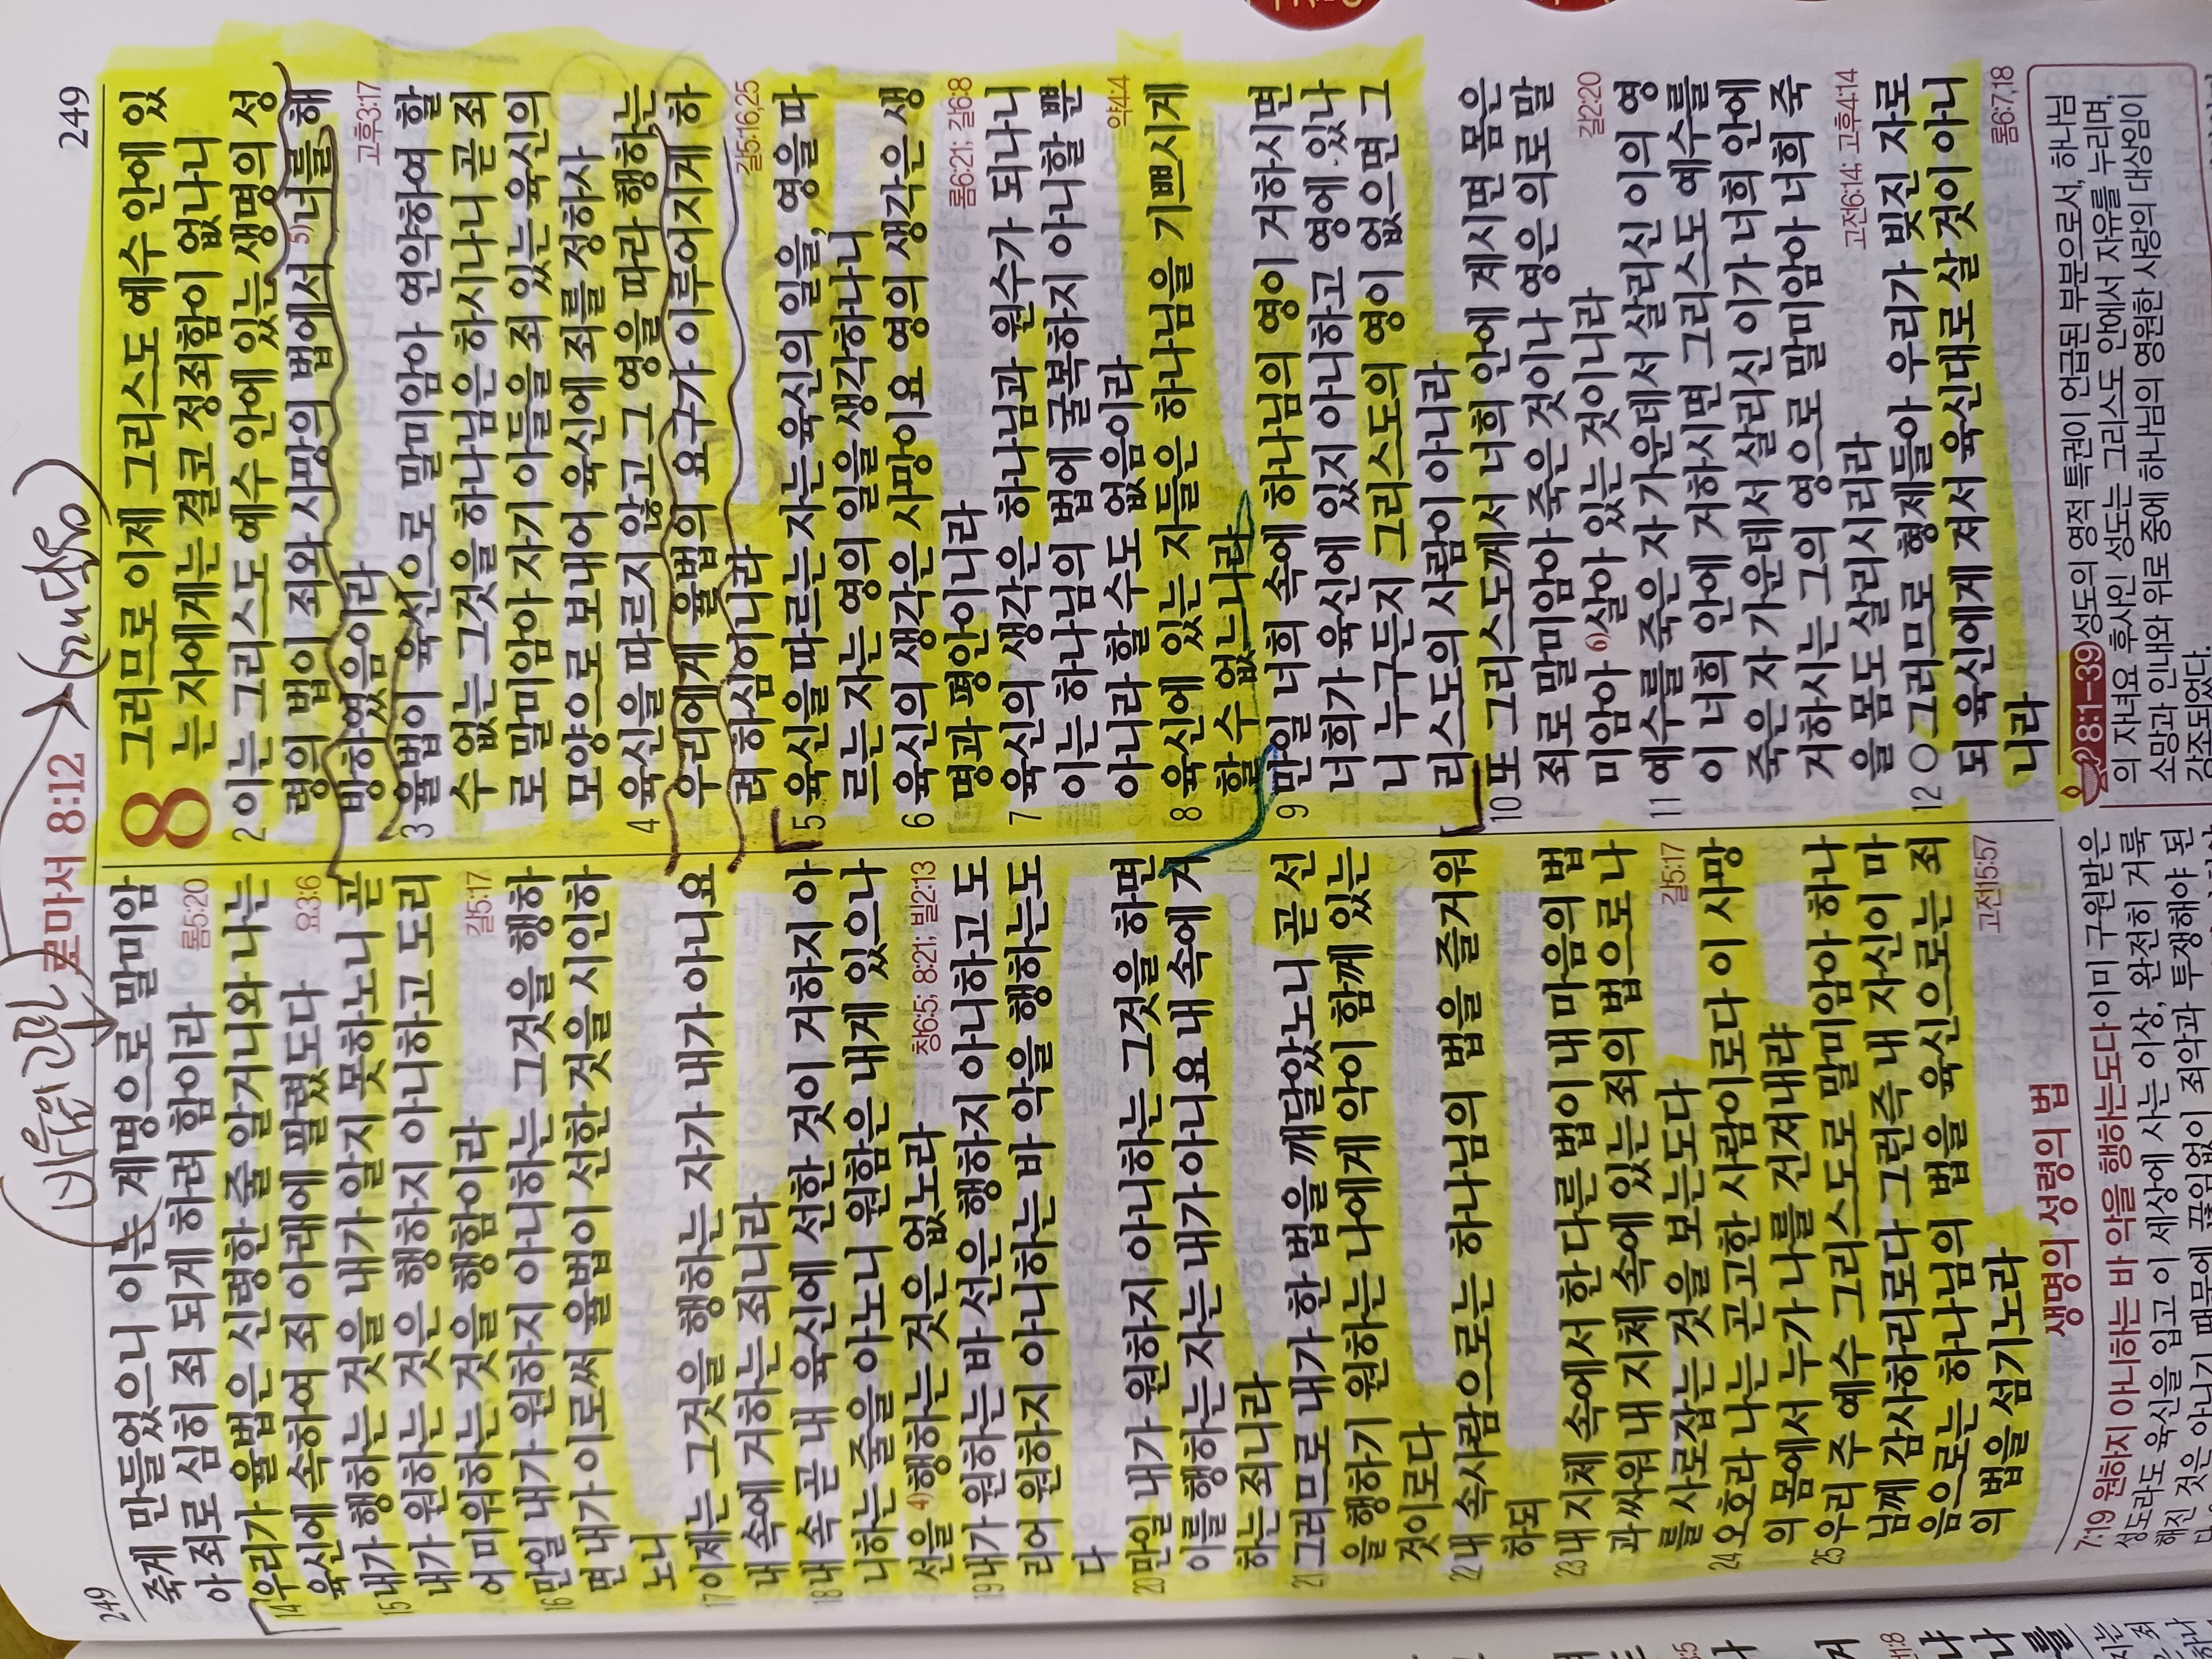 249
로마서 8:12
249
(깨닫음)
죽게 만들었으니 이는 계명으로 말미암
아 죄로 심히 죄 되게 하려 함이라
롬5:20
14 우리가 율법은 신령한 줄 알거니와 나는
육신에 속하여 죄 아래에 팔렸도다
요3:6
15 내가 행하는 것을 내가 알지 못하노니 곧
내가 원하는 것은 행하지 아니하고 도리
어 미워하는 것을 행함이라
갈5:17
16 만일 내가 원하지 아니하는 그것을 행하
면 내가 이로써 율법이 선한 것을 시인하
노니
17 이제는 그것을 행하는 자가 내가 아니요
내 속에 거하는 죄니라
18 내 속 곧 내 육신에 선한 것이 거하지 아
니하는 줄을 아노니 원함은 내게 있으나
선을 4)행하는 것은 없노라
창6:5; 8:21; 빌2:13
19 내가 원하는 바 선은 행하지 아니하고 도
리어 원하지 아니하는 바 악을 행하는도
다
20 만일 내가 원하지 아니하는 그것을 하면
이를 행하는 자는 내가 아니요 내 속에 거
하는 죄니라
21 그러므로 내가 한 법을 깨달았노니 곧 선
을 행하기 원하는 나에게 악이 함께 있는
것이로다
22 내 속사람으로는 하나님의 법을 즐거워
하되
23 내 지체 속에서 한 다른 법이 내 마음의 법
과 싸워 내 지체 속에 있는 죄의 법으로 나
를 사로잡는 것을 보는도다
갈5:17
24 오호라 나는 곤고한 사람이로다 이 사망
의 몸에서 누가 나를 건져내랴
25 우리 주 예수 그리스도로 말미암아 하나
님께 감사하리로다 그런즉 내 자신이 마
음으로는 하나님의 법을 육신으로는 죄
의 법을 섬기노라
고전15:57
생명의 성령의 법
8 그러므로 이제 그리스도 예수 안에 있
는 자에게는 결코 정죄함이 없나니
2 이는 그리스도 예수 안에 있는 생명의 성
령의 법이 죄와 사망의 법에서 5)너를 해
방하였음이라
고후3:17
3 율법이 육신으로 말미암아 연약하여 할
수 없는 그것을 하나님은 하시나니 곧 죄
로 말미암아 자기 아들을 죄 있는 육신의
모양으로 보내어 육신에 죄를 정하사
4 육신을 따르지 않고 그 영을 따라 행하는
우리에게 율법의 요구가 이루어지게 하
려 하심이니라
갈5:16,25
5 육신을 따르는 자는 육신의 일을, 영을 따
르는 자는 영의 일을 생각하나니
6 육신의 생각은 사망이요 영의 생각은 생
명과 평안이니라
롬6:21; 갈6:8
7 육신의 생각은 하나님과 원수가 되나니
이는 하나님의 법에 굴복하지 아니할 뿐
아니라 할 수도 없음이라
약4:4
8 육신에 있는 자들은 하나님을 기쁘시게
할 수 없느니라
9 만일 너희 속에 하나님의 영이 거하시면
너희가 육신에 있지 아니하고 영에 있나
니 누구든지 그리스도의 영이 없으면 그
리스도의 사람이 아니라
10 또 그리스도께서 너희 안에 계시면 몸은
죄로 말미암아 죽은 것이나 영은 의로 말
미암아 6)살아 있는 것이니라
갈2:20
11 예수를 죽은 자 가운데서 살리신 이의 영
이 너희 안에 거하시면 그리스도 예수를
죽은 자 가운데서 살리신 이가 너희 안에
거하시는 그의 영으로 말미암아 너희 죽
을 몸도 살리시리라
고전6:14; 고후4:14
12 ○그러므로 형제들아 우리가 빚진 자로
되 육신에게 져서 육신대로 살 것이 아니
니라
롬6:7,18
7:19 원하지 아니하는 바 악을 행하는도다 이미 구원받은
성도라도 육신을 입고 이 세상에 사는 이상, 완전히 거룩
해진 것은 아니기 때문에 끊임없이 죄악과 투쟁해야 된
8:1-39 성도의 영적 특권이 언급된 부분으로서, 하나님
의 자녀요 후사인 성도는 그리스도 안에서 자유를 누리며,
소망과 인내와 위로 중에 하나님의 영원한 사랑의 대상임이
강조되었다.